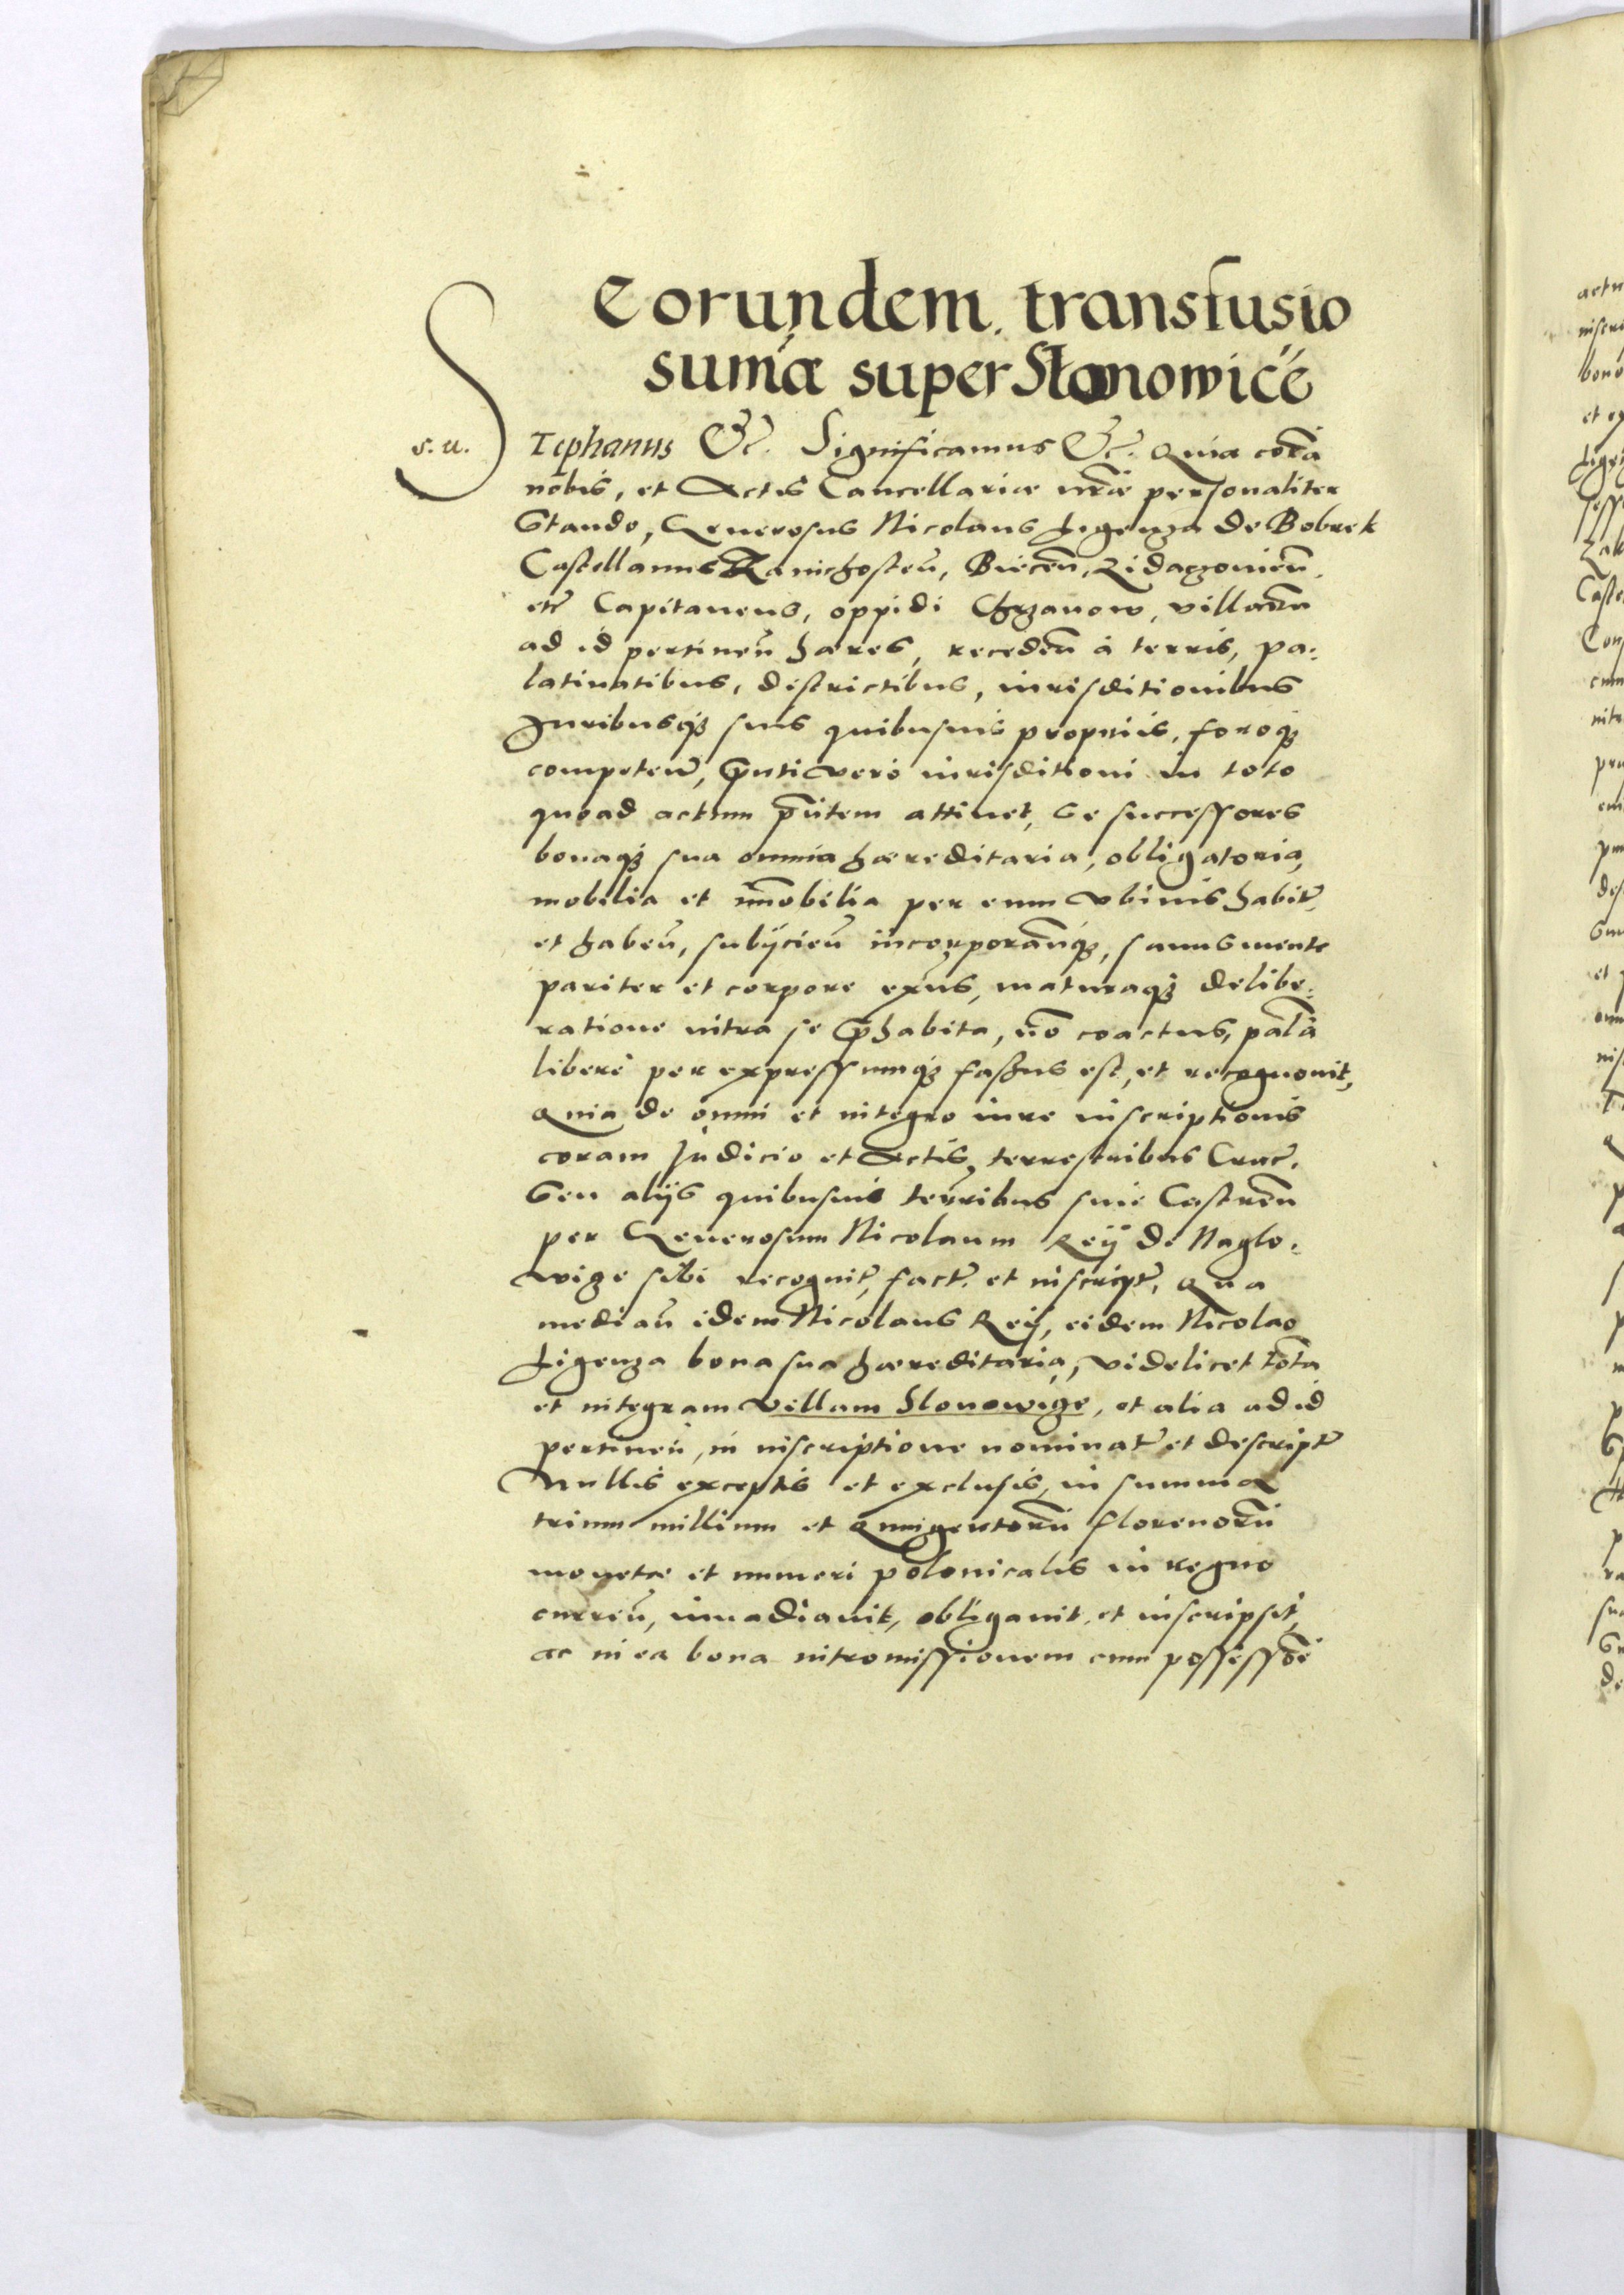 Eorundem transfusio
sum̃a super Słonowicé
s. u.
STephanus &c̃. Significamus &c̃. Quia corã
nobis, et Actis Cancellariæ nr̃æ personaliter
stando, Generosus Nicolaus Ligenza de Bobrek
Castellanus Zanichosteñ, Biecẽn, Zidaczouiẽn
etc̃ Capitaneus, oppidi Chrzanow, villarũ
ad id pertineñ hæres, recedẽn à terris, pa:
latinatibus, districtibus, iurisditionibus
Iuribusq3 suis quibusuis proprijs, foroq3
competeñ, p̃nti vero iurisditioni in toto
quoad actum p̃ntem attinet, se successores
bonaq3 sua omnia hæreditaria, obligatoria,
mobilia et im̃obilia per eum vbiuis habit̃,
et habeñ, subijcieñ incorporañq3, sanus mente
pariter et corpore exñs, maturaq3 delibe:
ratione intra se p̃habita, nõ coactus, palã
liberè per expressumq3 fassus est, et recognouit,
Quia de omni et integro iure inscriptionis
coram Judicio et Actis, terrestribus Crac̃.
seu alijs quibusuis terr̃ribus siue Castrẽn
per Generosum Nicolaum Reÿ de Naglo:
wize sibi recognit̃, fact̃. et inscript̃, Qua
mediañ idem Nicolaus Reÿ, eidem Nicolao
Ligenza bona sua hæreditaria, videlicet totã
et integram villam Slonowize, et alia ad id
pertineñ, in inscriptione nominat̃ et descript̃
Nullis exceptis et exclusis, in summa
trium millium et Quingentorũ florenorũ
monetæ et numeri polonicalis in regno
curreñ, inuadiauit, obligauit, et inscripsit,
ac in ea bona intromissionem cum possessiõe